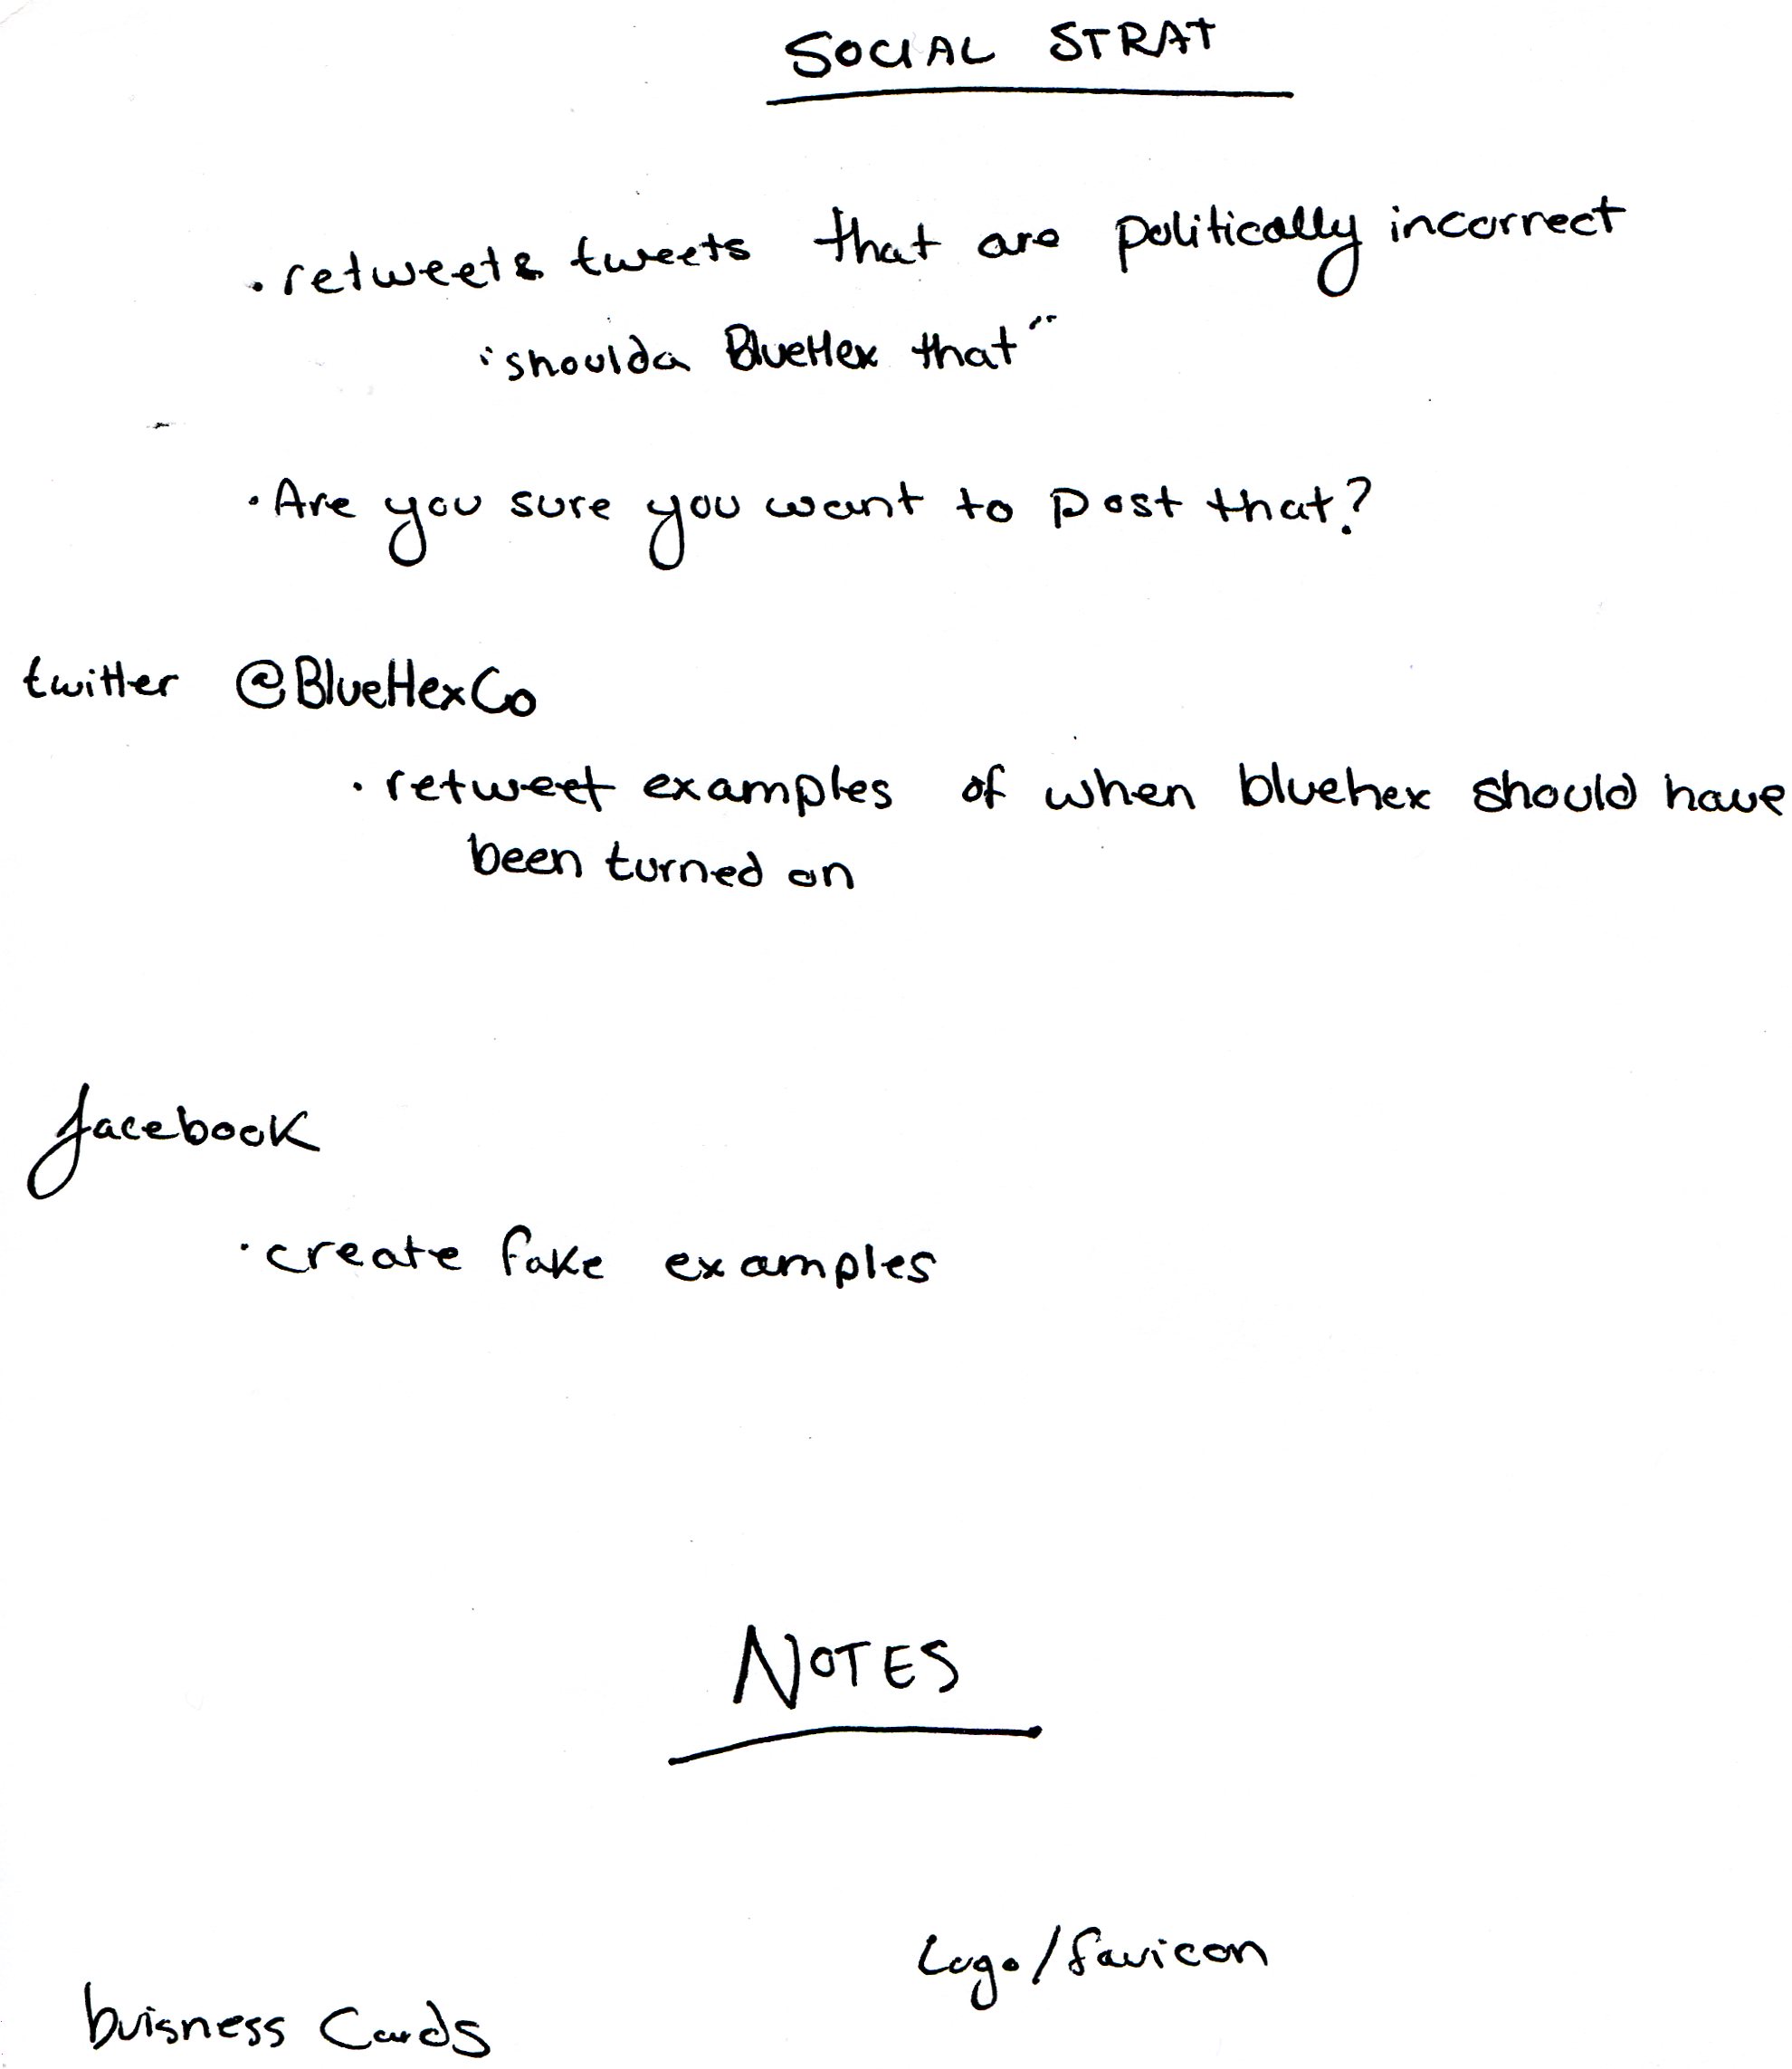 SOCIAL STRAT
• retweet tweets that are politically incorrect
"shoulda BlueHex that"
• Are you sure you want to post that?
twitter @BlueHexCo
• retweet examples of when bluehex should have
been turned on
facebook
• create fake examples
NOTES
Logo/favicon
buisness Cards